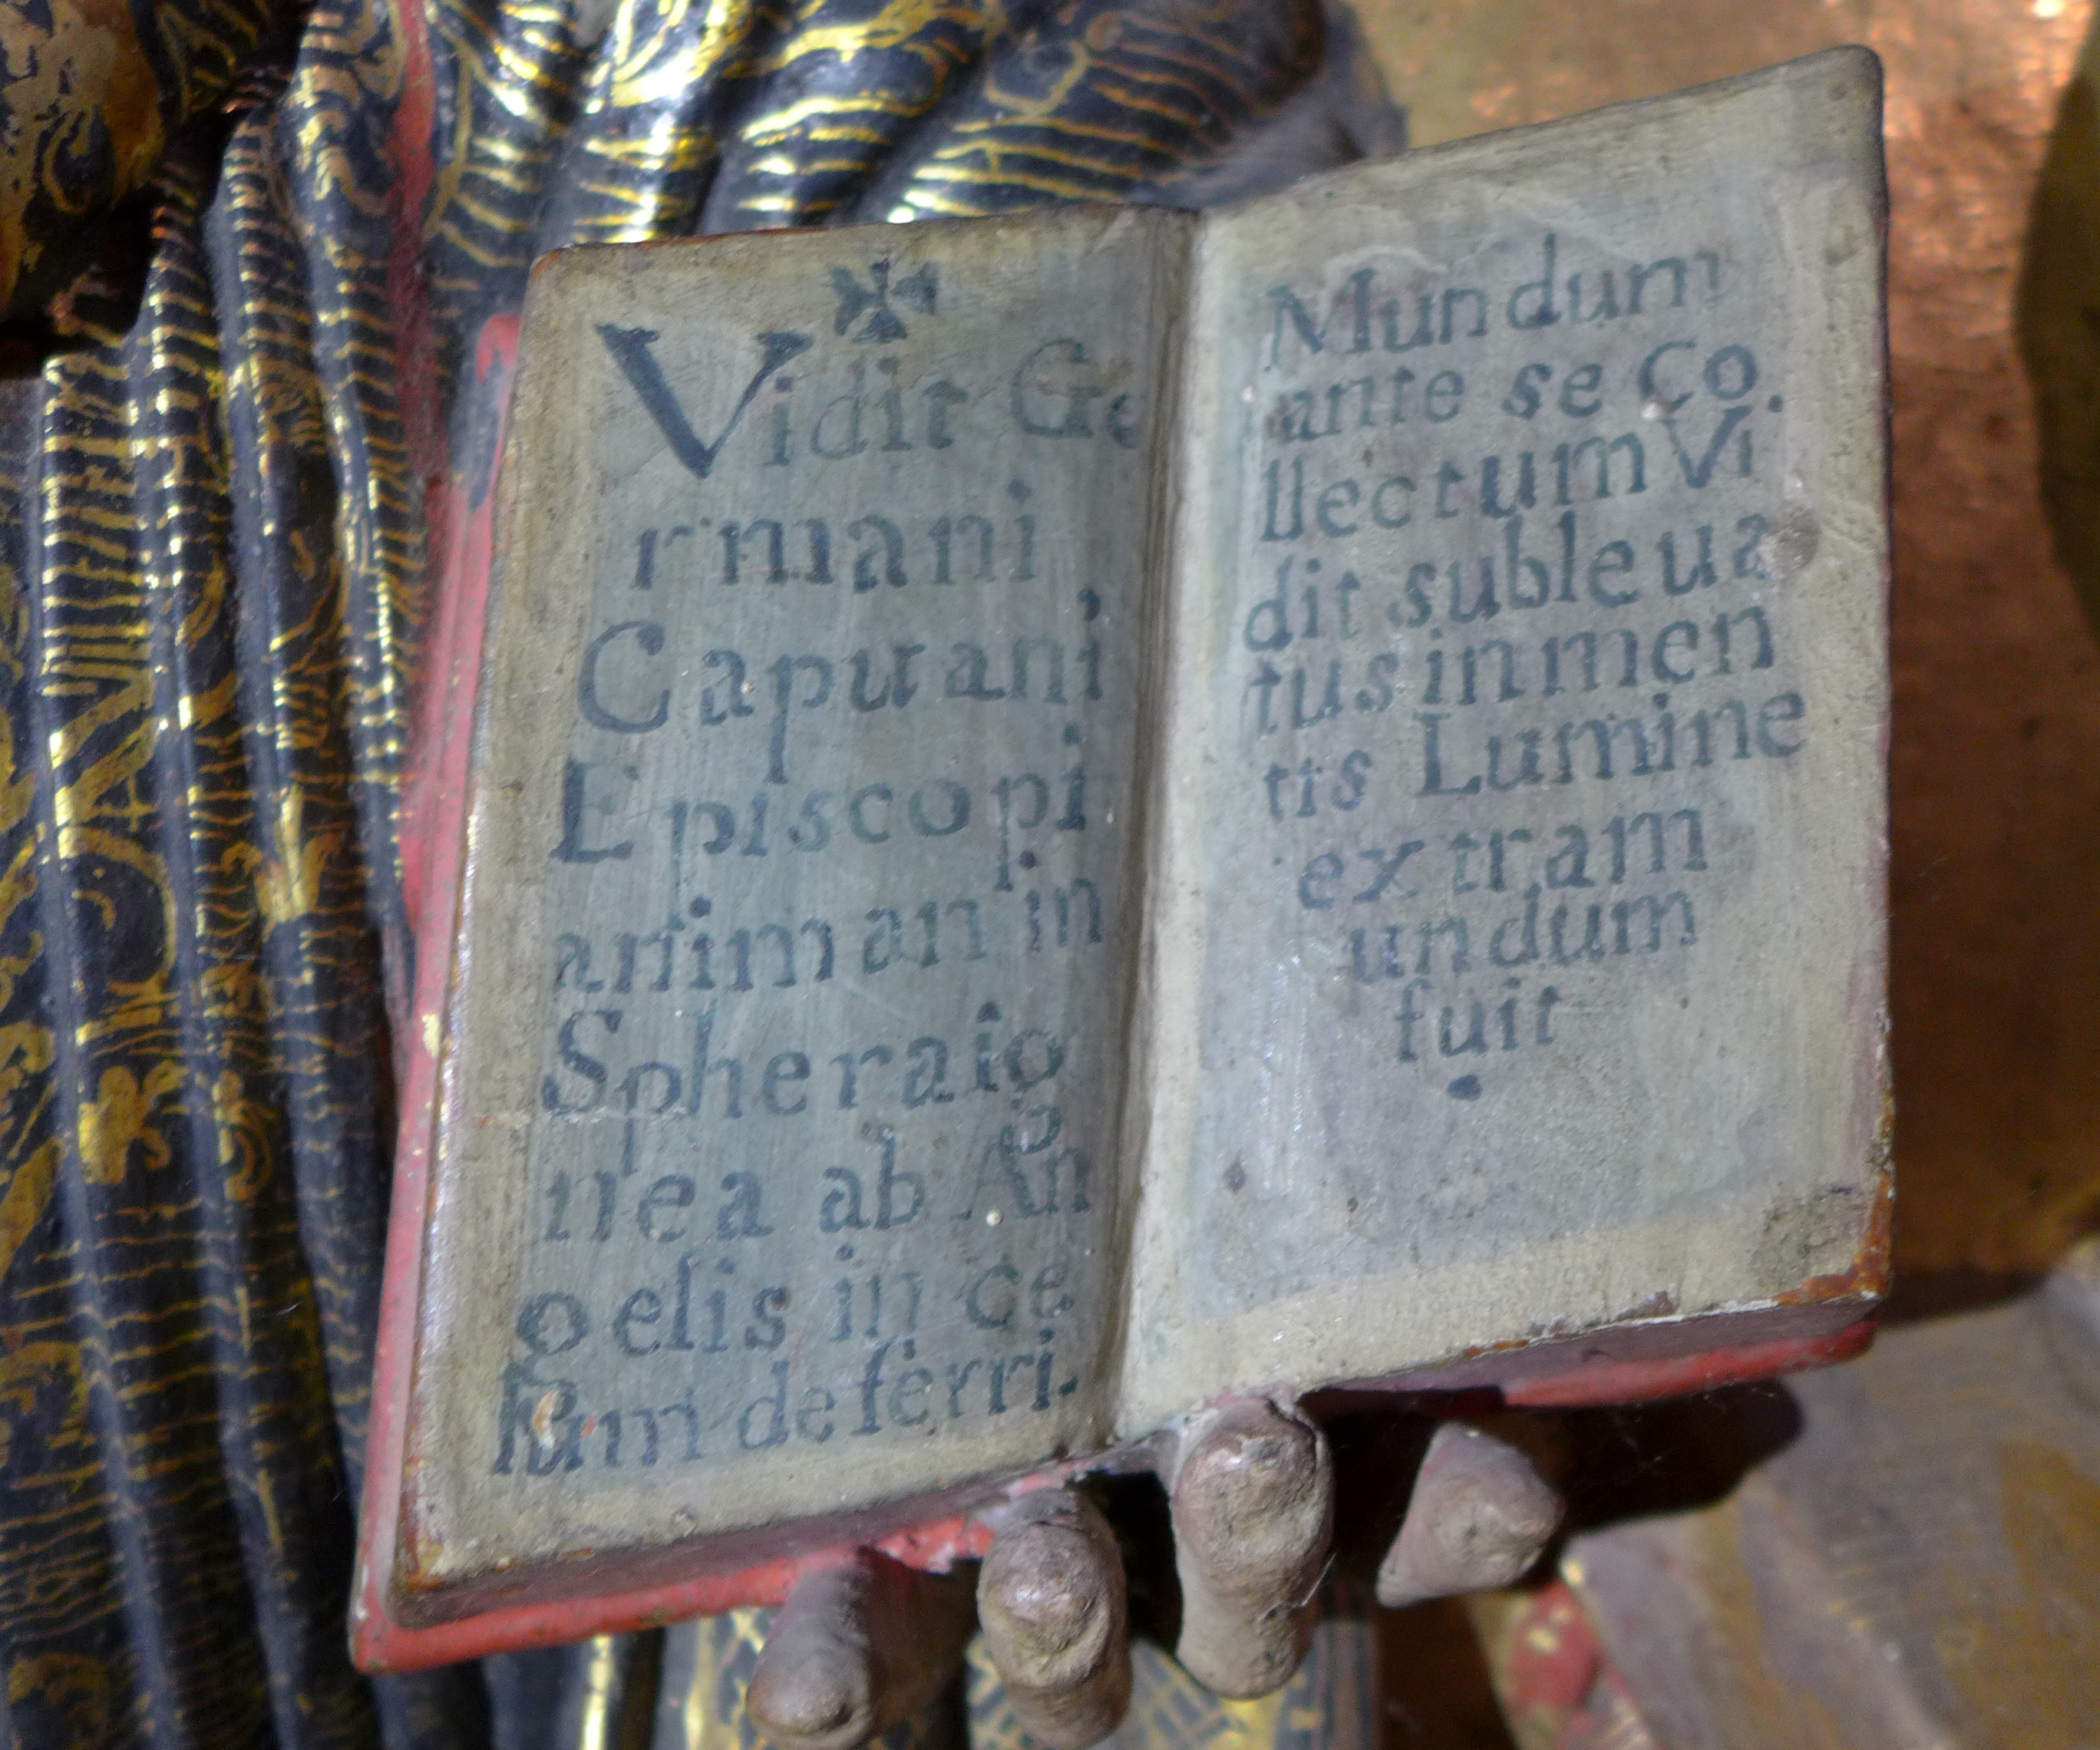 ✠
Vidit Ge
rmani
Capuani
Episcopi
animan in
Spheraig
nea ab An
gelis in ce
lum deferri.
Mundum
ante se Co.
llectum Vi
dit subleua
tus inmen
tis Lumine
extram
undum
fuit
.